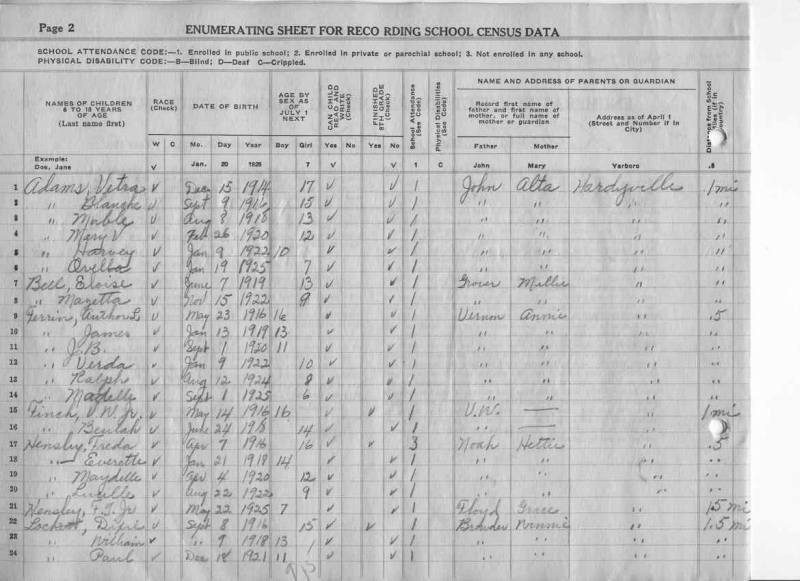 Page 2 ENUMERATING SHEET FOR RECO RDING SCHOOL CENSUS DATA
SCHOOL ATTENDANCE CODE:—1. Enrolled in public school; 2. Enrolled in private or parochial school; 3. Not enrolled in any school.
PHYSICAL DISABILITY CODE:—B—Blind; D—Deaf C—Crippled.
NAMES OF CHILDREN 6 TO 18 YEARS OF AGE (Last name first) RACE (Check) DATE OF BIRTH AGE BY SEX AS OF JULY 1 NEXT CAN CHILD READ AND WRITE (Check) FINISHED 8TH GRADE (Check) School Attendance (See Code) Physical Disabilities (See Code) NAME AND ADDRESS OF PARENTS OR GUARDIAN
Record first name of father and first name of mother, or full name of mother or guardian Address as of April 1 (Street and Number if in City) Distance from School
W C Mo. Day Year Boy Girl Yes No Yes No 1 Father Mother
Example: Doe, Jane V Jan. 20 1925 7 V V 1 C John Mary Yarboro .5
1 Adams, Vetra V Dec 15 1914 17 V V 1 John Alta Hardyville 1 mi
2 " Blanche V Sept 9 1916 15 V V 1 " " " "
3 " Mable V Aug 8 1918 13 V V 1 " " " "
4 " Mary V V Feb 26 1920 12 V V 1 " " " "
5 " Harvey V Jan 9 1922 10 V V 1 " " " "
6 " V Jan 19 1925 7 V V 1 " " " "
7 Bell, Eloise V June 7 1919 13 V V 1 Grover Millie " "
8 " Mazetta V Nov 15 1922 9 V V 1 " " " "
9 Ferrin, Author L V May 23 1916 16 V V 1 Vernon Annie " .5
10 " James V Jan 13 1919 13 V V 1 " " " "
11 " J.B. V Sept 1 1920 11 V V 1 " " " "
12 " Verda V Jan 9 1922 10 V V 1 " " " "
13 " Ralph V Aug 12 1924 8 V V 1 " " " "
14 " Madelle V Sept 1 1925 6 V V 1 " " " "
15 Finch, V.W. Jr. V May 14 1916 16 V 1 V.W. — " 1 mi
16 " Beulah V June 24 1918 14 V V 1 " — " "
17 Hensley, Freda V Apr 7 1916 16 V V 3 Noah Hettie " .5
18 " Everette V Jan 21 1918 14 V V 1 " " " "
19 " Maydelle V Apr 4 1920 12 V V 1 " " " "
20 " Lucille V Aug 22 1922 9 V V 1 " " " "
21 Hensley, F.G. Jr V May 22 1925 7 V V 1 Floyd Grace " 1.5 mi
22 Dixie V Sept 8 1916 15 V V 1 Browder Winnie " 1.5 mi
23 " William V " 9 1918 13 V V 1 " " " "
24 " Paul V Dec 18 1921 11 V V 1 " " " "